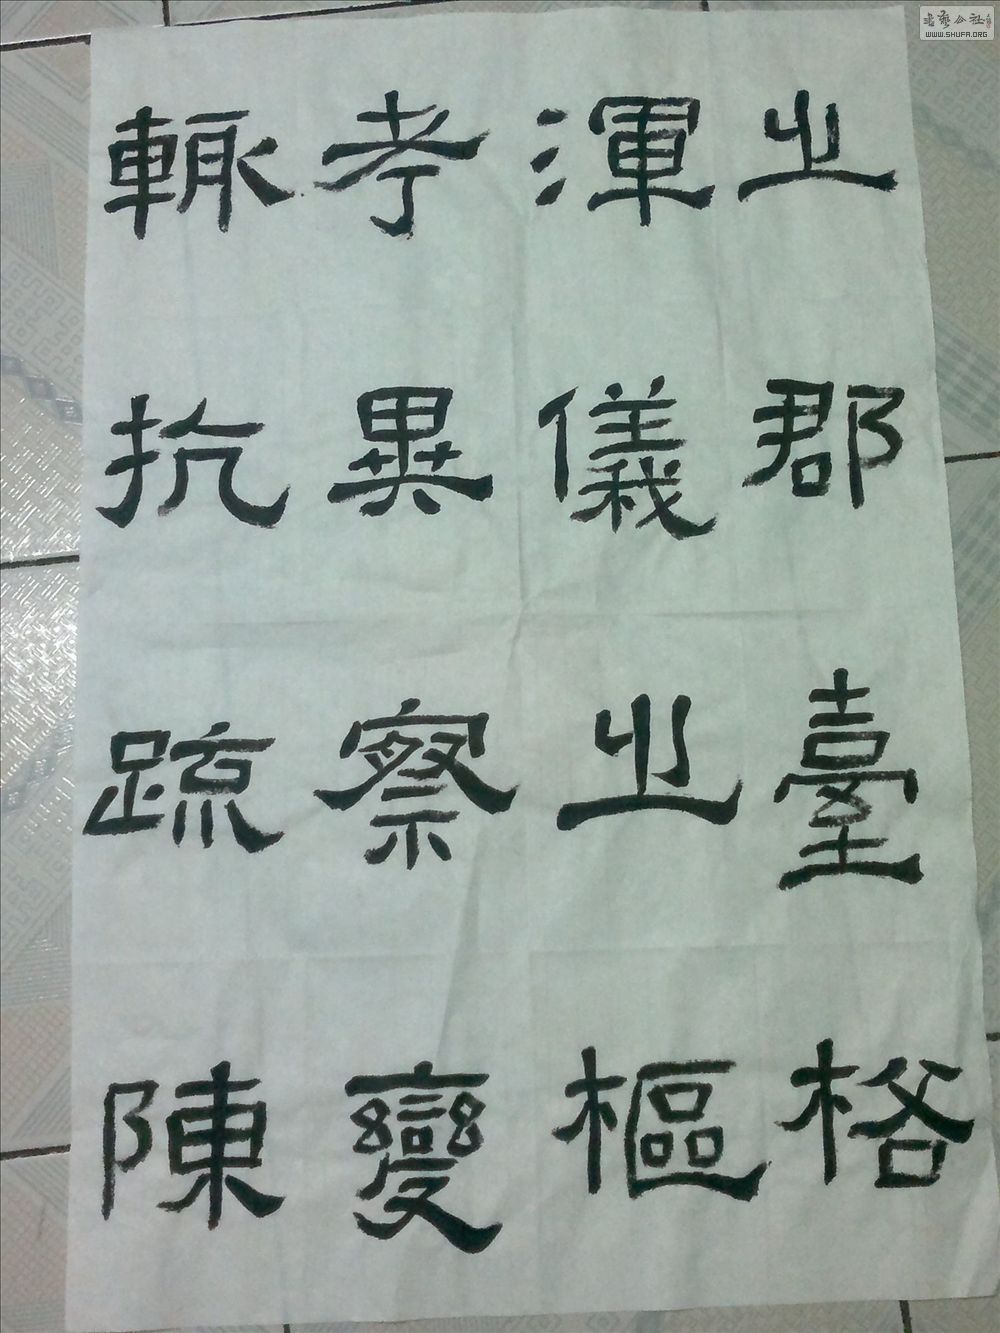 之郡臺格
渾儀之樞
考異察變
輒抗疏陳
书艺公社
WWW.SHUFA.ORG